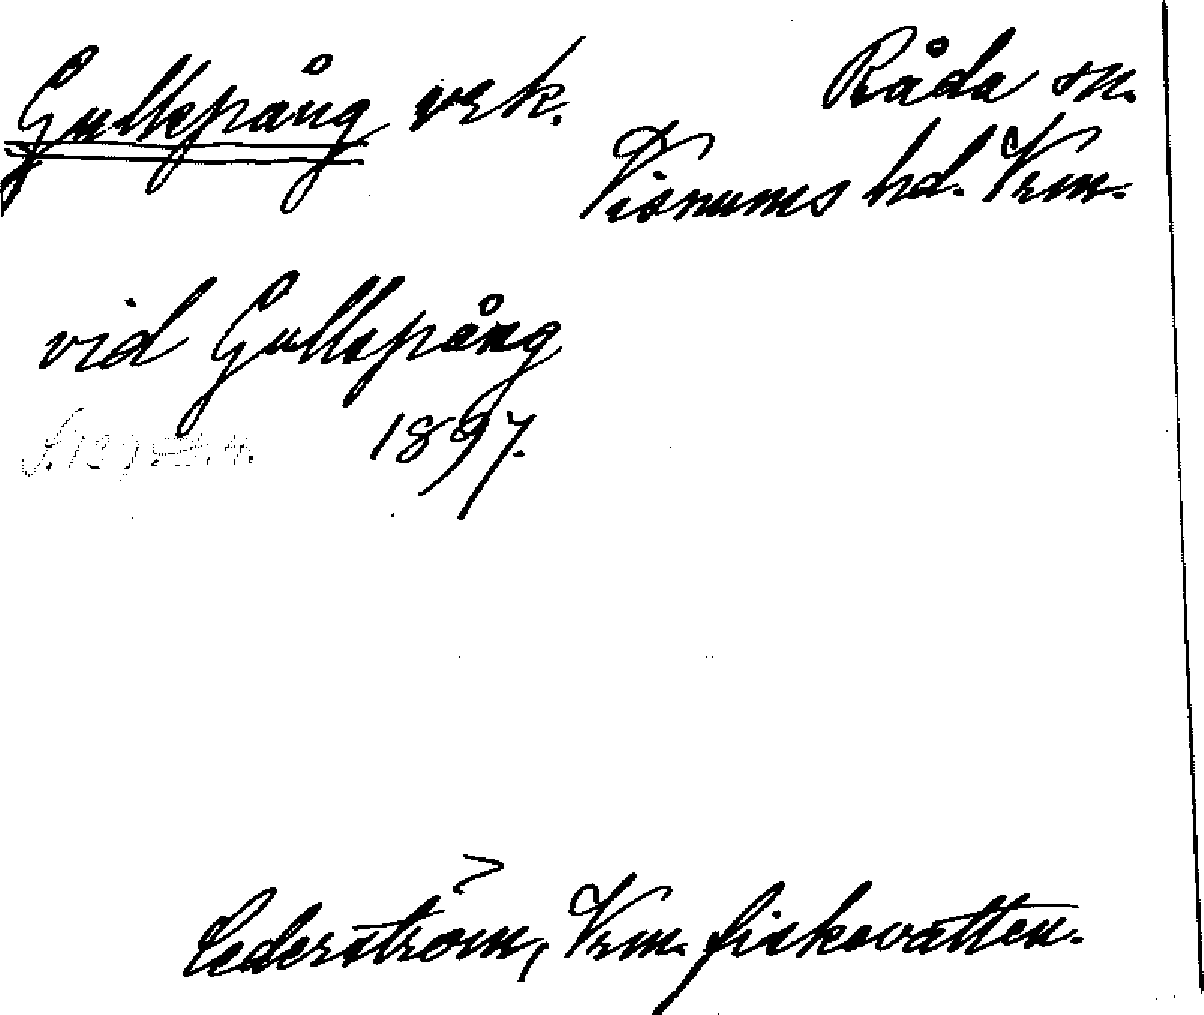 Gullspång vrk. Råda sn.
Visnums hd. Vrm.
vid Gullspång
1897.
Cederström, Vrm. fiskevatten.